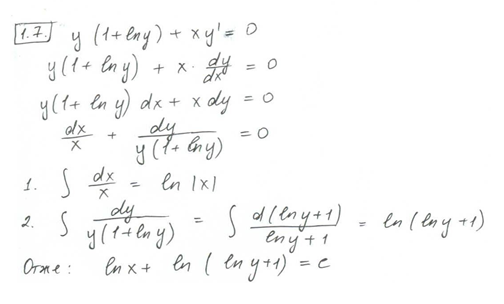 1.7. y (1+ln y) + x y' = 0
y(1+ ln y) + x · dy/dx = 0
y(1+ ln y) dx + x dy = 0
dx/x + dy/y(1+ln y) = 0
1. ∫ dx/x = ln |x|
2. ∫ dy/y(1+ln y) = ∫ d(ln y+1)/ln y+1 = ln (ln y+1)
Отже: ln x + ln ( ln y+1) = c